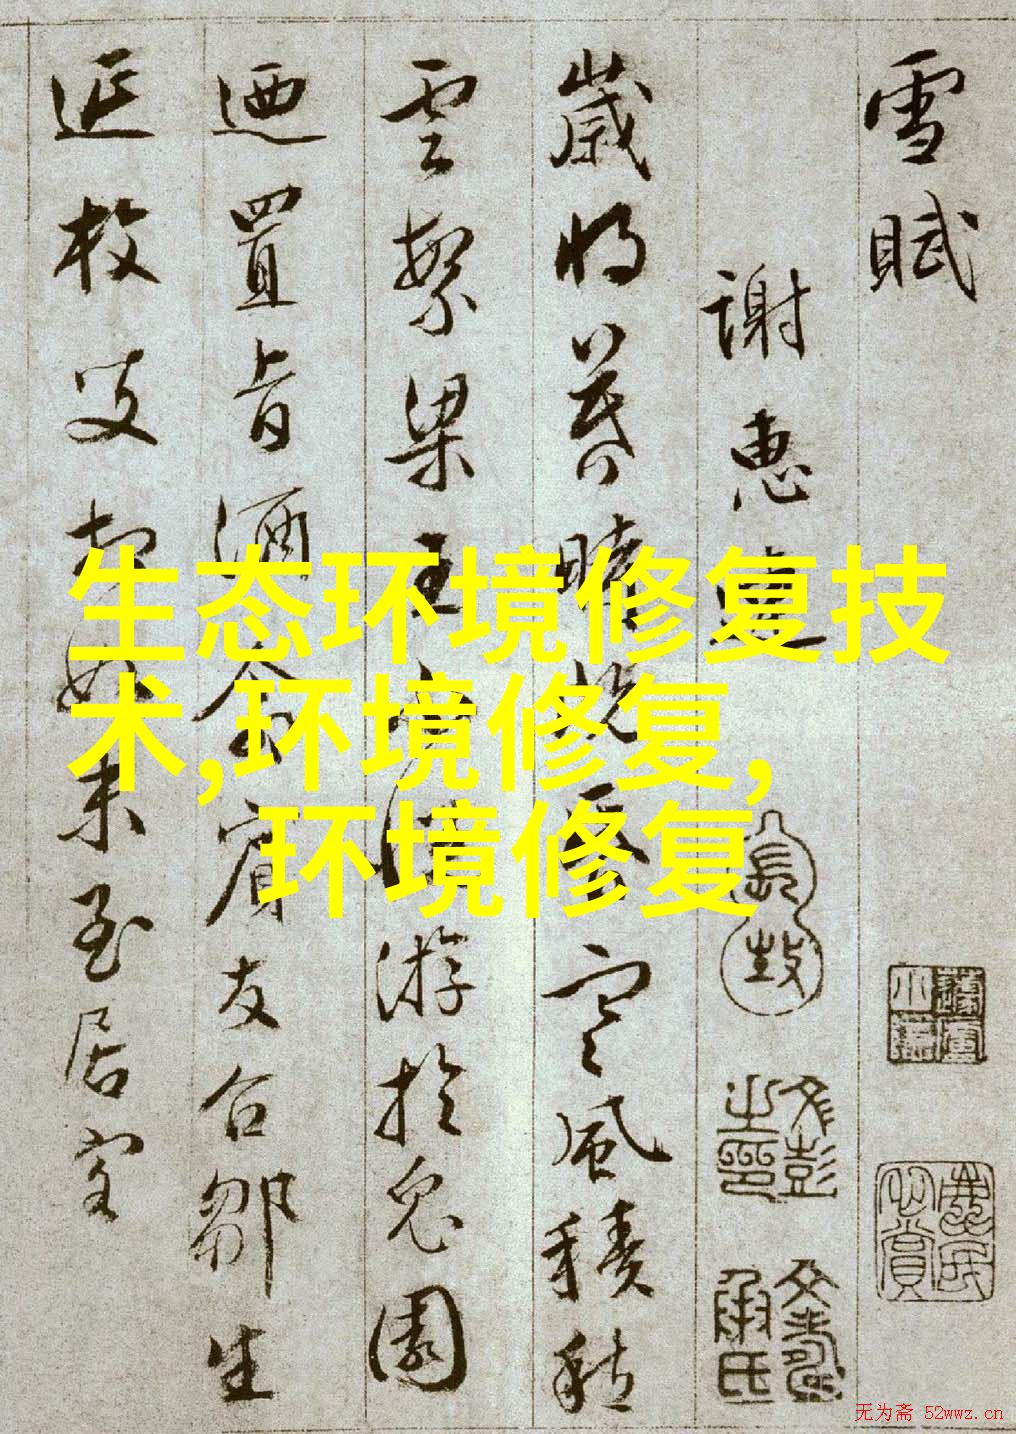 雪賦
謝惠連
歲將暮時既昏寒風積愁
雲繁梁王不悅游於兔園
迺置旨酒命賓友召鄒生
延枚叟相如末至居客
生态环境修复技
术,环境修复,
环境修复
文彭之印
无为斋 52wwz.cn